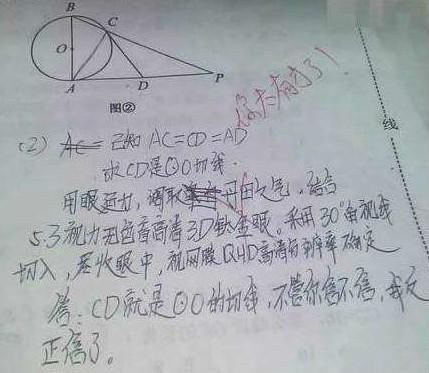 B
C
O
A
D
P
图②
你太有才了!
线
(2) AC= 已知 AC=CD=AD
求CD是⊙O切线.
用眼过力,调取 丹田之气,结合
5.3视力无色盲高清3D钛金眼.采用30°角视线
切入,尽收眼中,视网膜QHD高清分辨率确定
答:CD就是⊙O的切线,不管你信不信,我反
正信了。